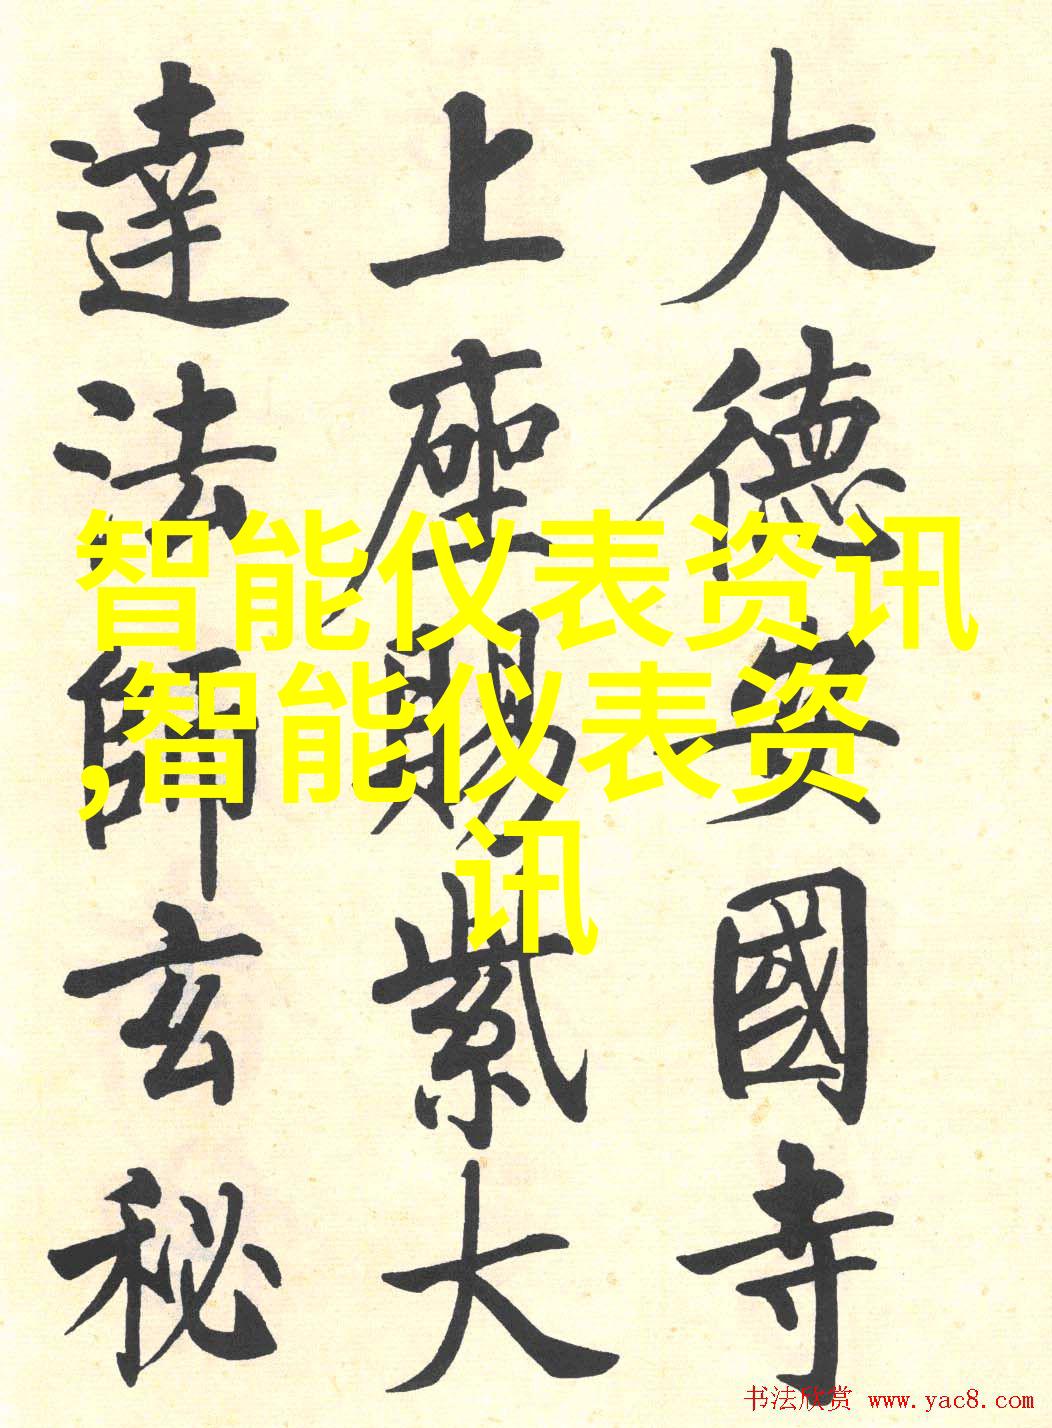 大德安國寺
上座賜紫大
達法師玄秘
智能仪表资讯
,智能仪表资
讯
书法欣赏 www.yac8.com